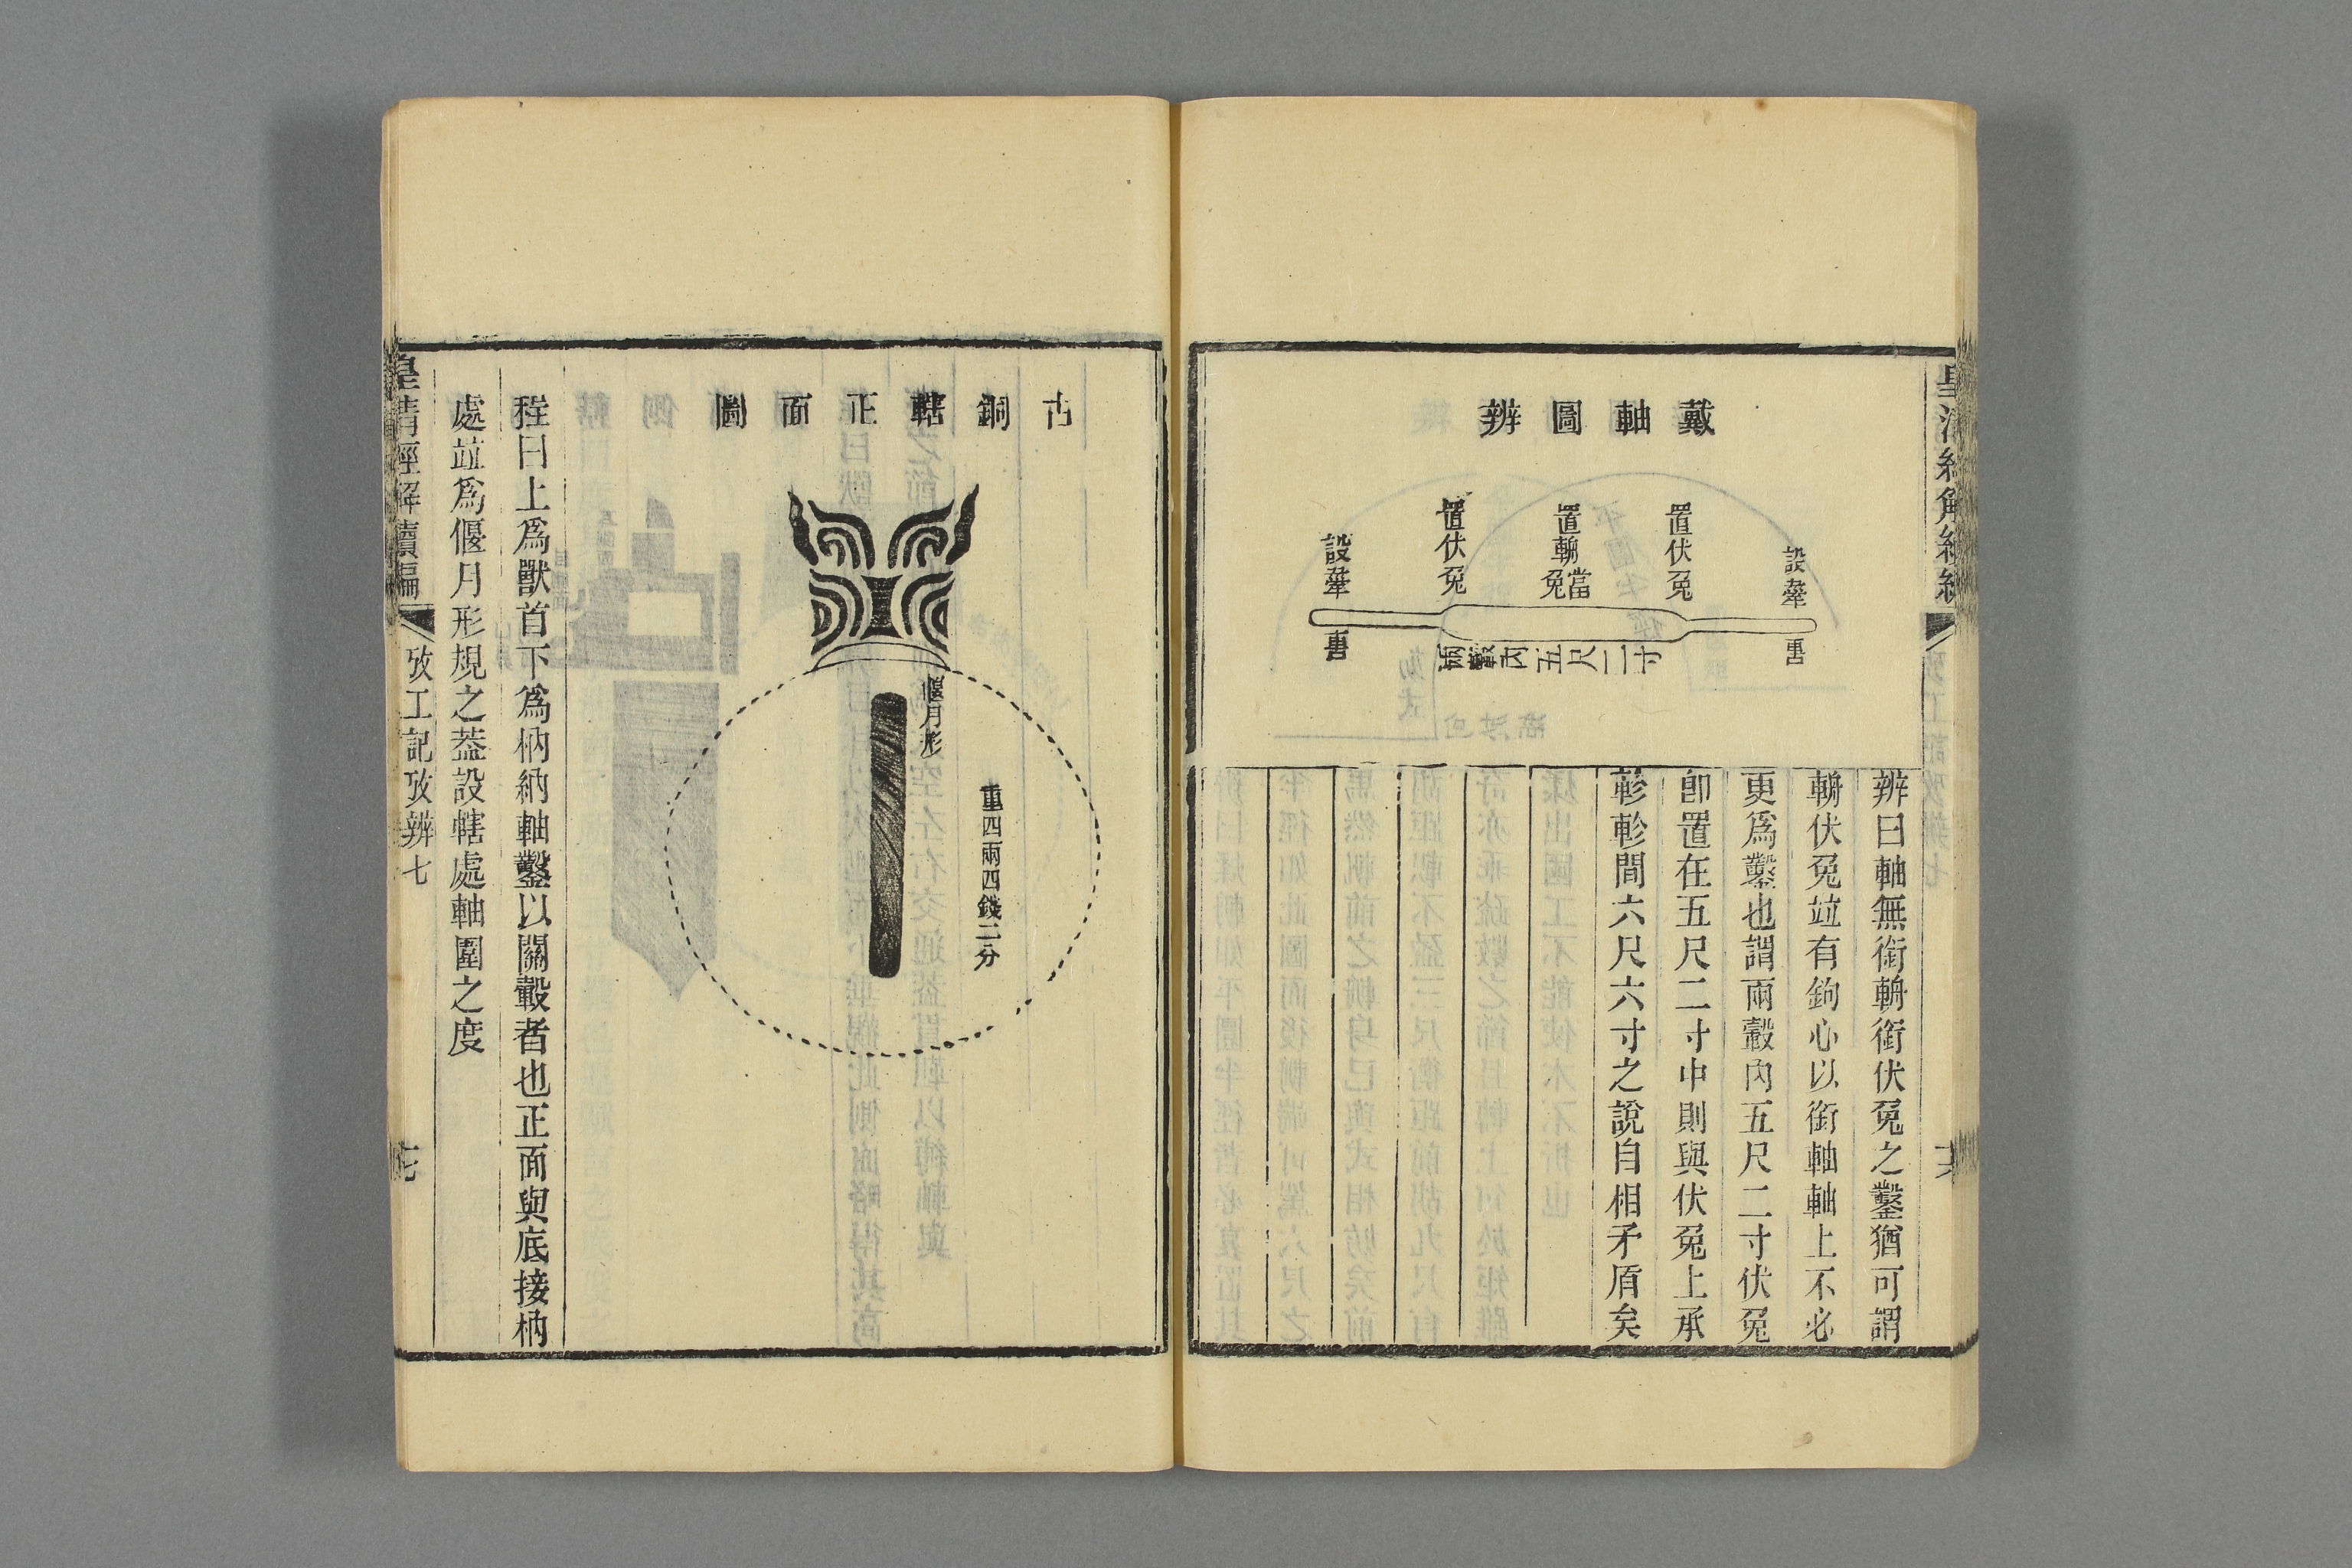 戴軸圖辨
設舝
置伏兔
置輈當兔
置伏兔
設舝
軎
軎
兩轂內五尺二寸
辨曰軸無銜輈銜伏兔之鑿猶可謂
輈伏兔竝有鉤心以銜軸軸上不必
更爲鑿也謂兩轂內五尺二寸伏兔
卽置在五尺二寸中則與伏兔上承
軫軫間六尺六寸之說自相矛盾矣
古銅轄正面圖
偃月形
重四兩四錢二分
程曰上爲獸首下爲柄納軸鑿以關轂者也正面與底接柄
處竝爲偃月形規之葢設轄處軸圍之度
皇清經解續編
攷工記攷辨七